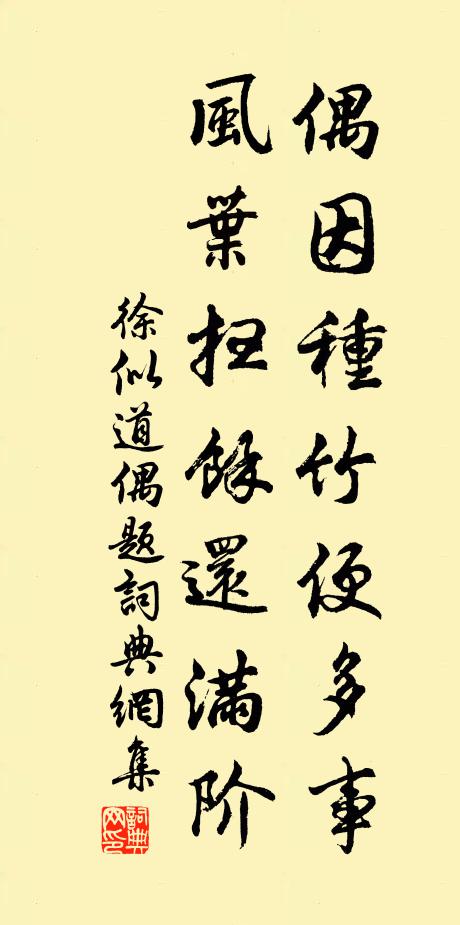 偶因種竹便多事
風葉扫餘還滿阶
徐似道偶题詞典網集
詞典网印